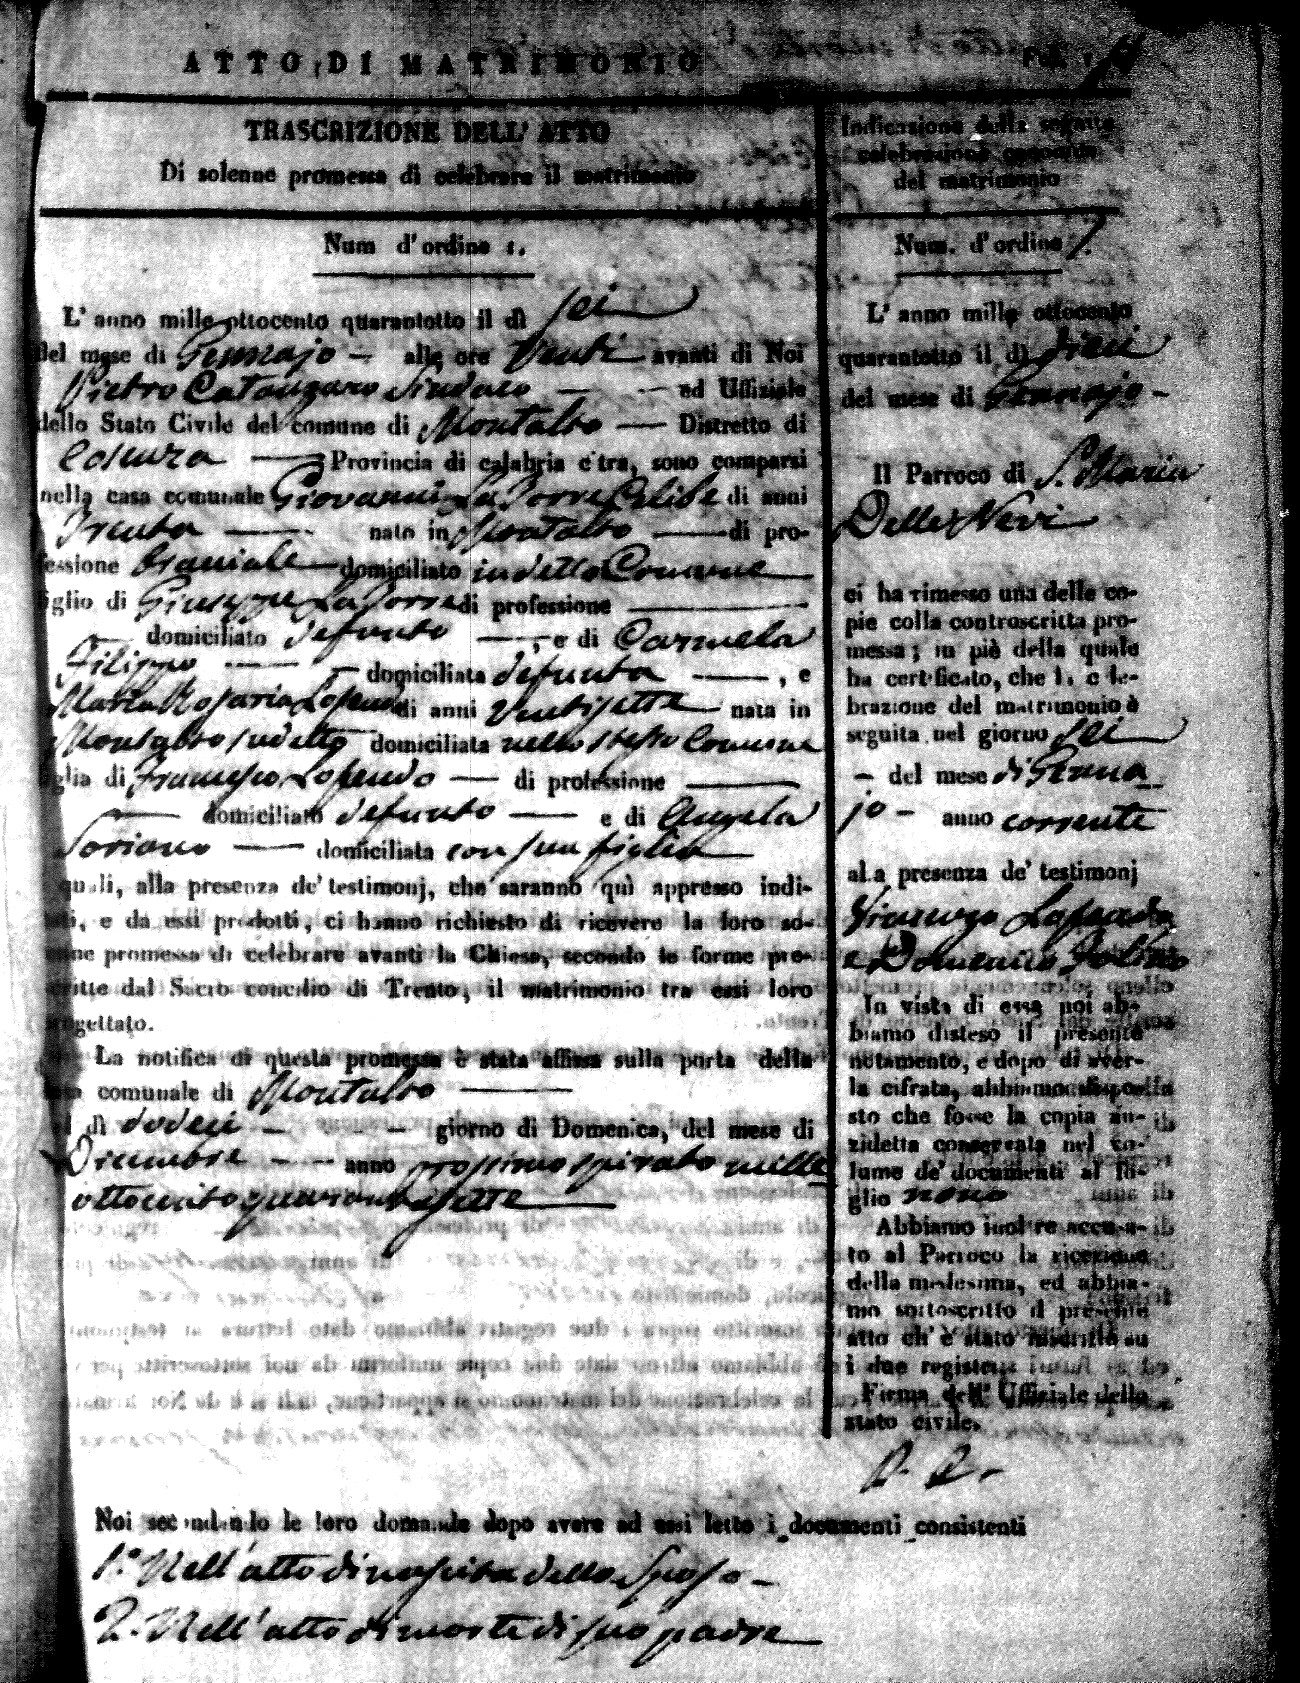 ATTO DI MATRIMONIO
TRASCRIZIONE DELL' ATTO
Di solenne promessa di celebrare il matrimonio
Num d'ordine 1.
L' anno mille ottocento quarantotto il dì sei
del mese di Gennajo — alle ore venti avanti di Noi
Pietro Catanzaro Sindaco — ed Uffiziale
dello Stato Civile del comune di Montalto — Distretto di
Cosenza — Provincia di calabria citra, sono comparsi
nella casa comunale Giovanni La Porre Celibe di anni
Trenta — nato in Montalto — di pro-
fessione domiciliato in detto Comune
figlio di Giuseppe di professione —
domiciliato defunto —, e di Carmela
Filippo — domiciliata defunta —, e
Maria Rosaria di anni Ventisette nata in
Montalto sudetto domiciliata nello stesso Comune
figlia di Francesco — di professione —
domiciliato defunto — e di Angela
Soriano — domiciliata con sua figlia
quali, alla presenza de' testimonj, che saranno quì appresso indi-
cati, e da essi prodotti, ci hanno richiesto di ricevere la loro so-
lenne promessa di celebrare avanti la Chiesa, secondo le forme pre-
scritte dal Sacro concilio di Trento, il matrimonio tra essi loro
progettato.
La notifica di questa promessa è stata affissa sulla porta della
casa comunale di Montalto —
dì dodeci — giorno di Domenica, del mese di
Dicembre — anno prossimo spirato mille
ottocento quarantasette —
Indicazione della seguita
celebrazione canonica
del matrimonio
Num. d'ordine 1.
L' anno mille ottocento
quarantotto il dì dieci
del mese di Gennajo —
Il Parroco di S. Maria
Delle Nevi
ci ha rimesso una delle co-
pie colla controscritta pro-
messa; in piè della quale
ha certificato, che la cele-
brazione del matrimonio è
seguita nel giorno sei
— del mese di Genna
jo — anno corrente
alla presenza de' testimonj
e Domenico
In vista di essa noi ab-
biamo disteso il presente
notamento, e dopo di aver-
la cifrata, abbiamo dispo-
sto che fosse la copia an-
zidetta conservata nel vo-
lume de' documenti al fo-
glio nono
Abbiamo inoltre accusa-
to al Parroco la ricezione
della medesima, ed abbia-
mo sottoscritto il presente
atto ch' è stato inscritto su
i due registri
Firma dell' Uffiziale dello
stato civile.
Noi secondando le loro domande dopo avere ad essi letto i documenti consistenti
1.° Nell' atto di nascita dello Sposo —
2. Nell' atto di morte di suo padre